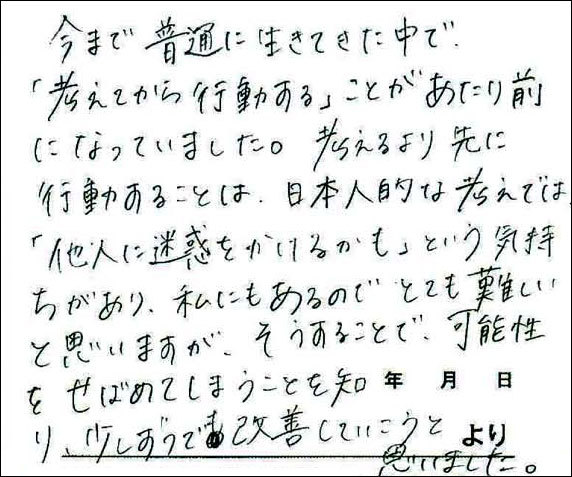 今まで普通に生きてきた中で、
「考えてから行動する」ことがあたり前
になっていました。考えるより先に
行動することは、日本人的な考えでは
「他人に迷惑をかけるかも」という気持
ちがあり、私にもあるのでとても難しい
と思いますが、そうすることで、可能性
をせばめてしまうことを知 年 月 日
り、少しずつでも改善していこうと より
思いました。